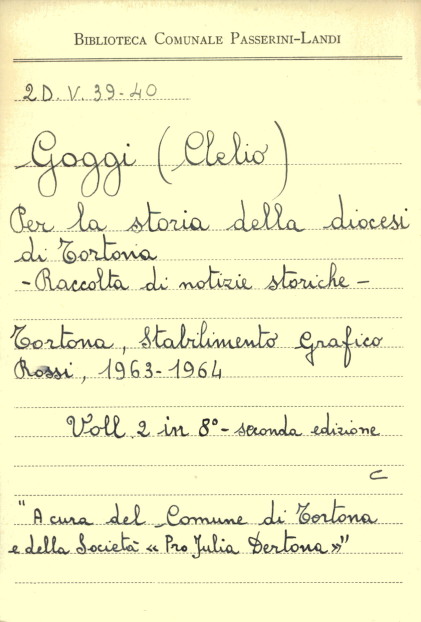 BIBLIOTECA COMUNALE PASSERINI-LANDI
2D. V. 39-40
Goggi (Clelio)
Per la storia della diocesi
di Tortona
- Raccolta di notizie storiche -
Tortona, Stabilimento Grafico
Rossi, 1963-1964
Voll. 2 in 8° - seconda edizione
C
"A cura del Comune di Tortona
e della Società « Pro Julia Dertona »"